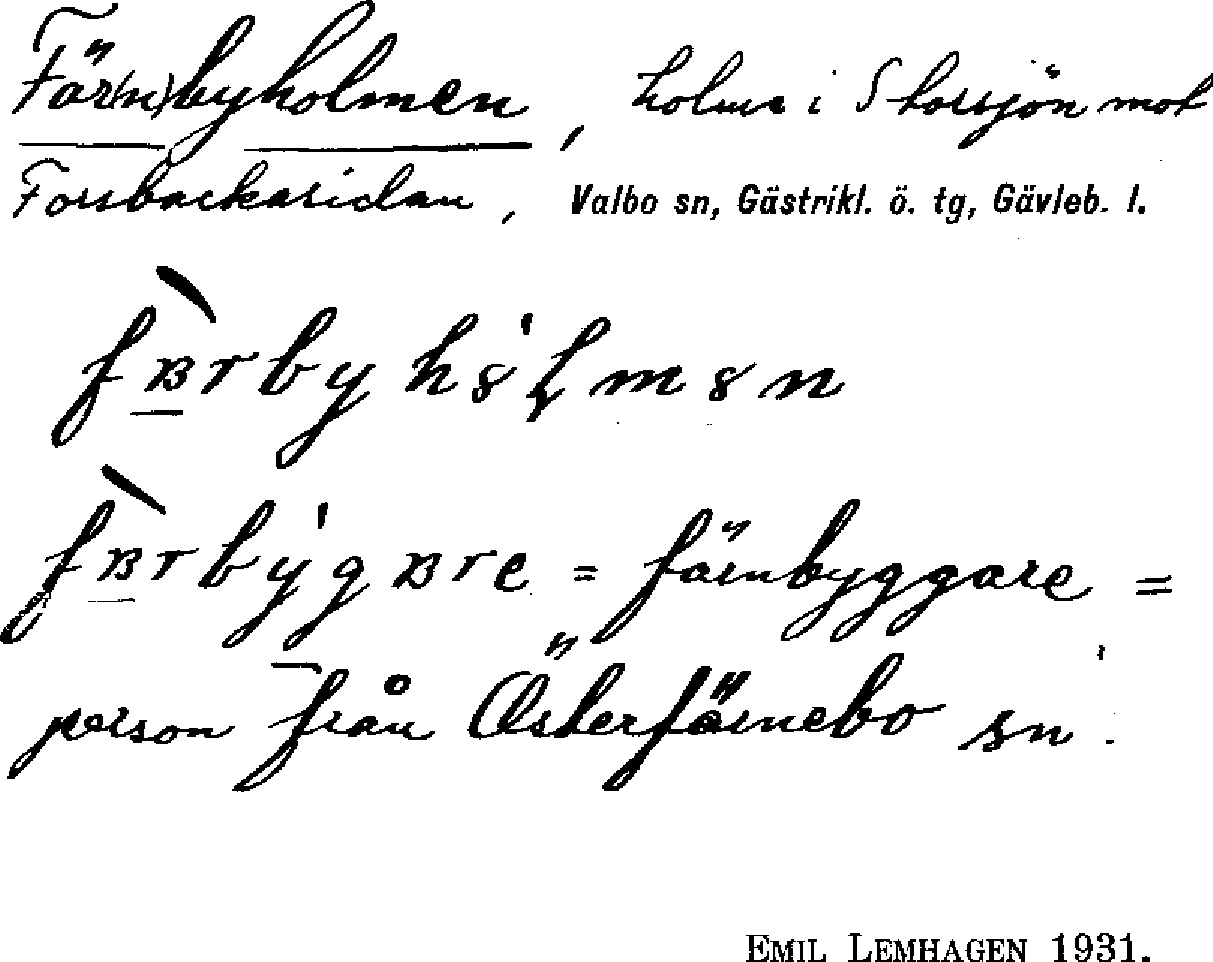 Fär(n)byholmen, holme i Storsjön mot
Forsbackasidan, Valbo sn, Gästrikl. ö. tg, Gävleb. l.
= färnbyggare =
person från Österfärnebo sn.
EMIL LEMHAGEN 1931.